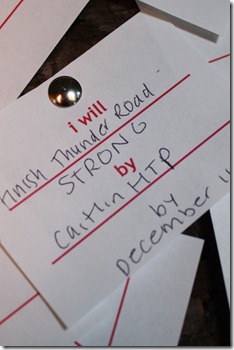 i will
Finish Thunder Road -
STRONG
by
Caitlin HTP
by
DECEMBER